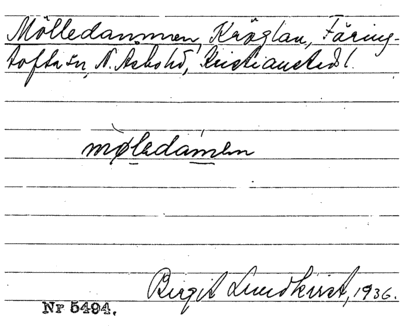 Mölledammen, Kröglan, Färing-
tofta sn, N. Åsbo hd, Kristianstad l.
møledam̀en
Birgit Lundkvist, 1936.
Nr 5494.